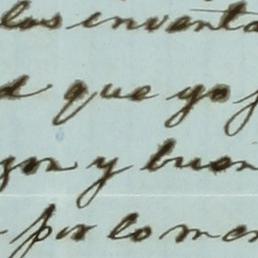 las inventa
que yo
zon y buen
por lo men